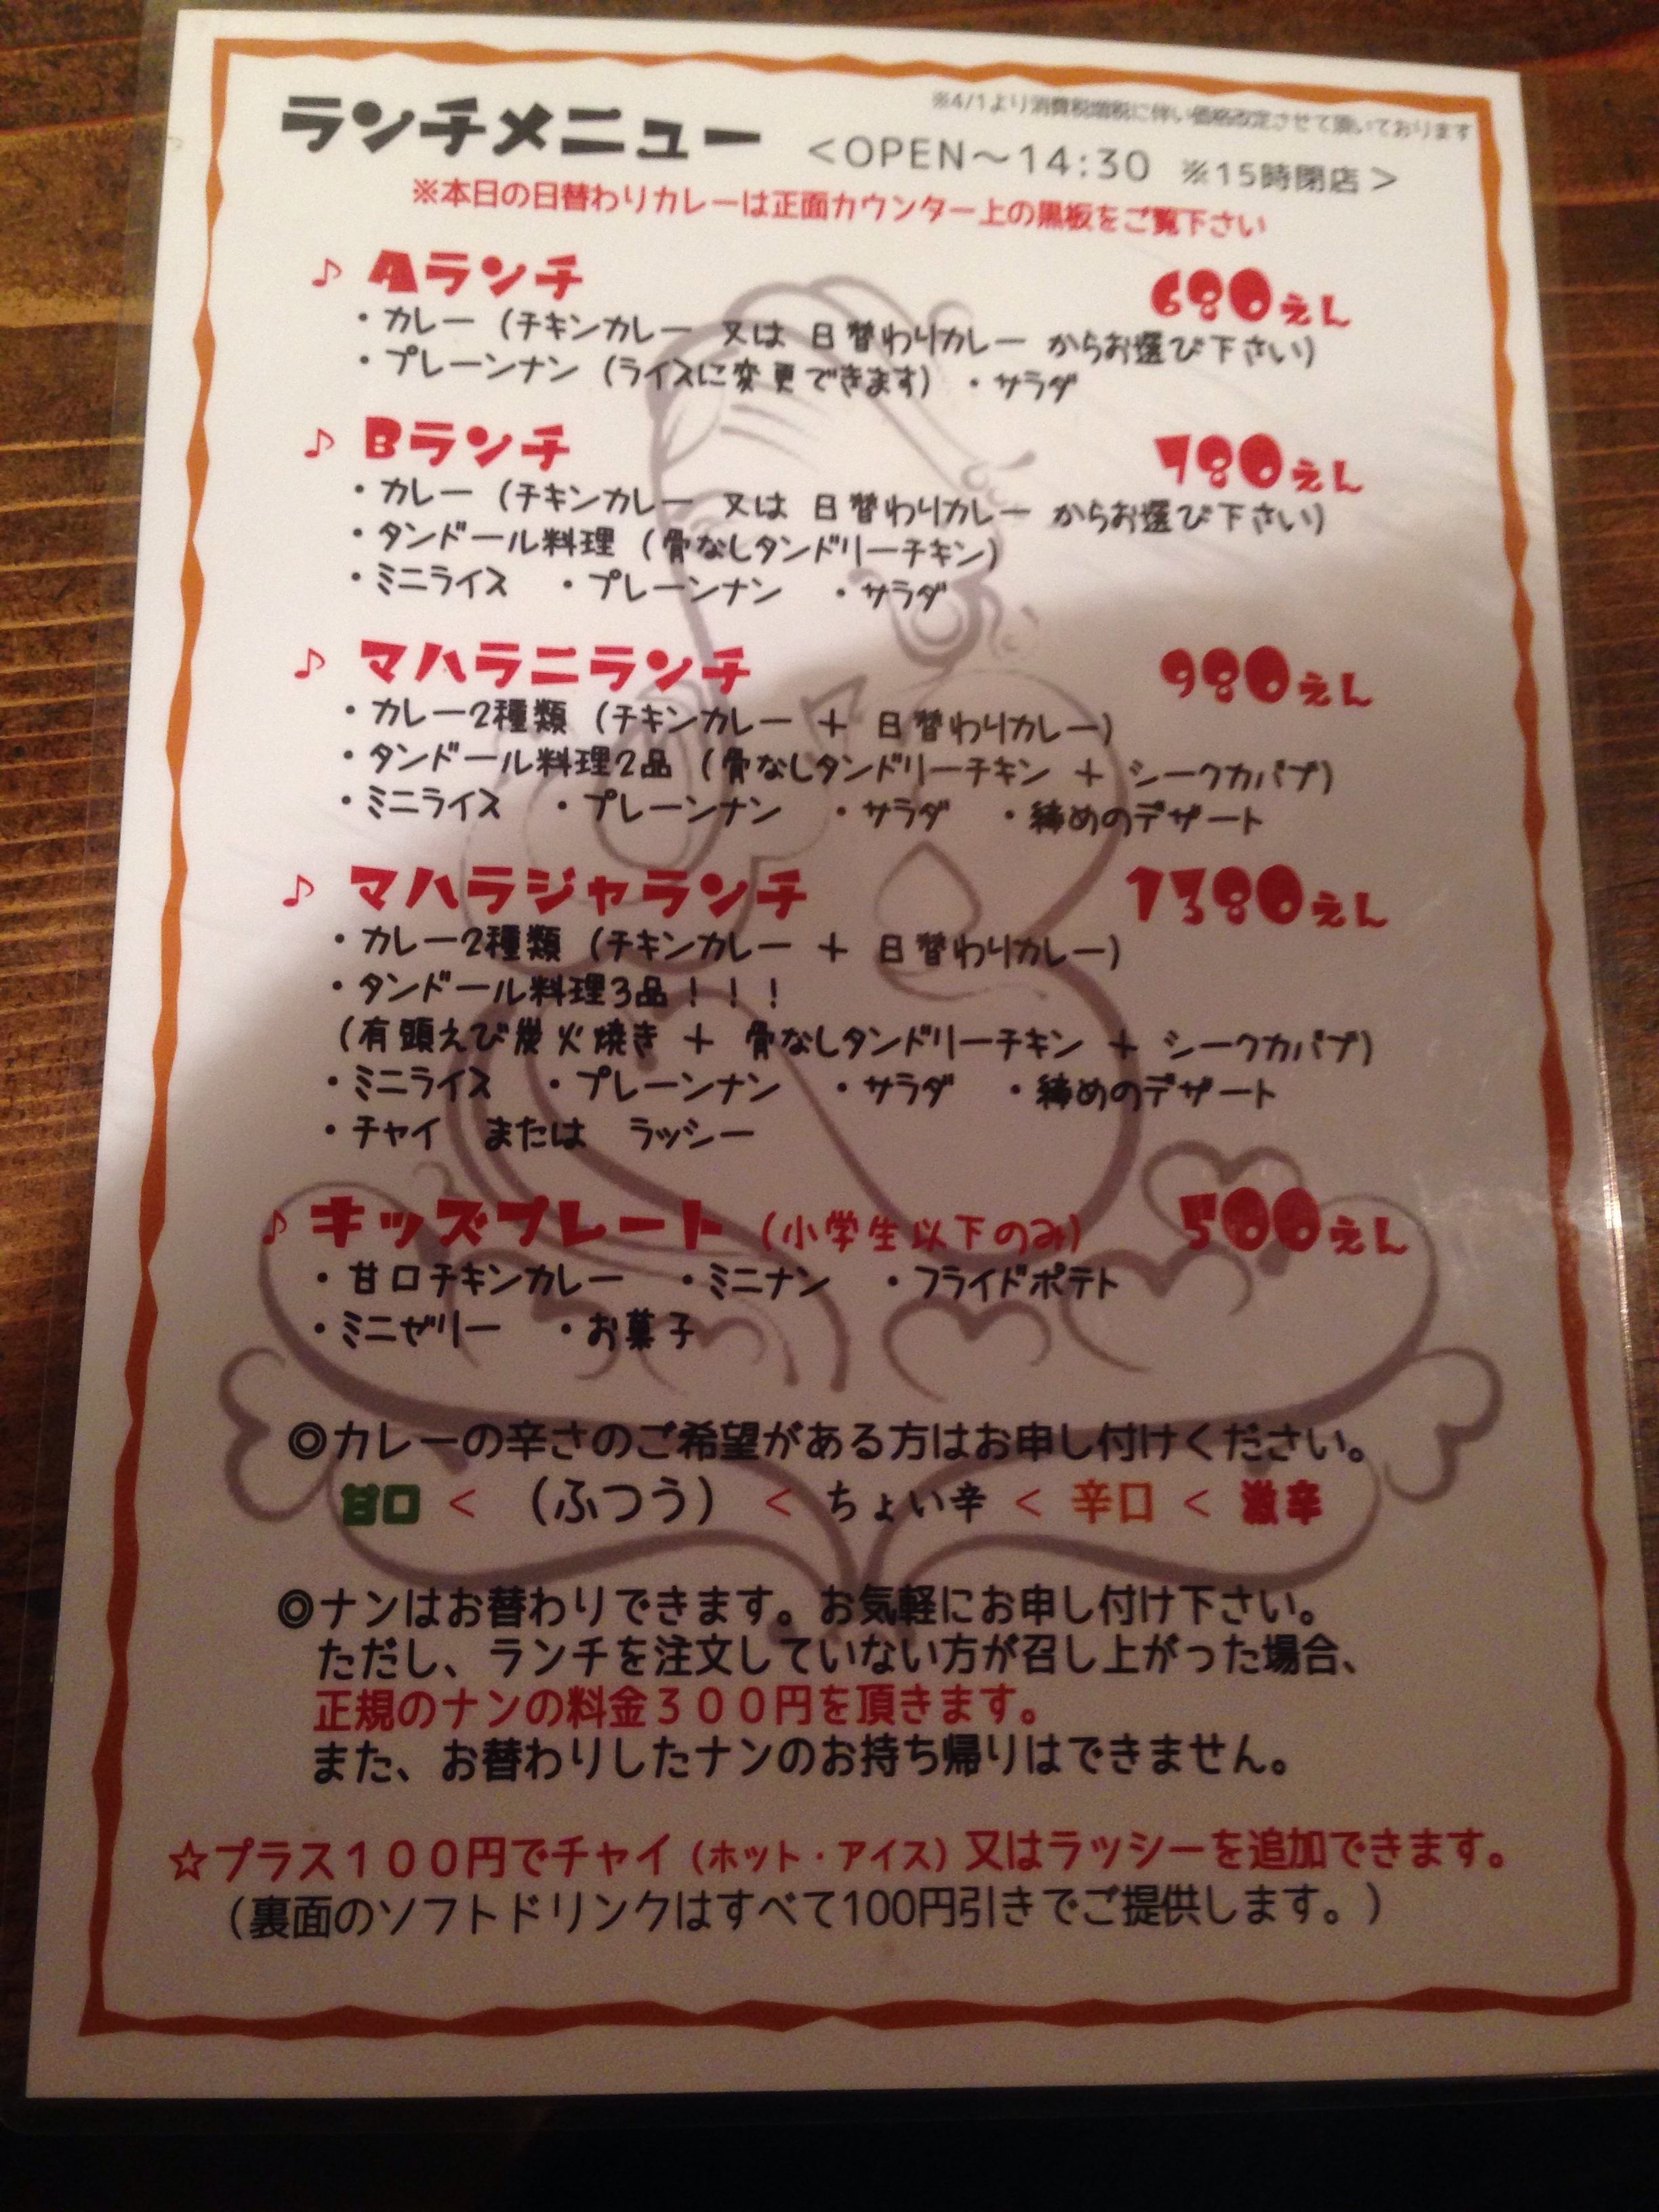 ※4/1より消費税増税に伴い価格改定させて頂いております
ランチメニュー <OPEN～14:30 ※15時閉店>
※本日の日替わりカレーは正面カウンター上の黒板をご覧下さい
♪ Aランチ 680えん
・カレー (チキンカレー 又は 日替わりカレー からお選び下さい)
・プレーンナン (ライスに変更できます) ・サラダ
♪ Bランチ 780えん
・カレー (チキンカレー 又は 日替わりカレー からお選び下さい)
・タンドール料理 (骨なしタンドリーチキン)
・ミニライス ・プレーンナン ・サラダ
♪ マハラニランチ 980えん
・カレー2種類 (チキンカレー + 日替わりカレー)
・タンドール料理2品 (骨なしタンドリーチキン + シークカバブ)
・ミニライス ・プレーンナン ・サラダ ・締めのデザート
♪ マハラジャランチ 1380えん
・カレー2種類 (チキンカレー + 日替わりカレー)
・タンドール料理3品！！！
(有頭えび炭火焼き + 骨なしタンドリーチキン + シークカバブ)
・ミニライス ・プレーンナン ・サラダ ・締めのデザート
・チャイ または ラッシー
♪ キッズプレート (小学生以下のみ) 500えん
・甘口チキンカレー ・ミニナン ・フライドポテト
・ミニゼリー ・お菓子
◎カレーの辛さのご希望がある方はお申し付けください。
甘口 < (ふつう) < ちょい辛 < 辛口 < 激辛
◎ナンはお替わりできます。お気軽にお申し付け下さい。
ただし、ランチを注文していない方が召し上がった場合、
正規のナンの料金３００円を頂きます。
また、お替わりしたナンのお持ち帰りはできません。
☆プラス１００円でチャイ（ホット・アイス）又はラッシーを追加できます。
（裏面のソフトドリンクはすべて100円引きでご提供します。）